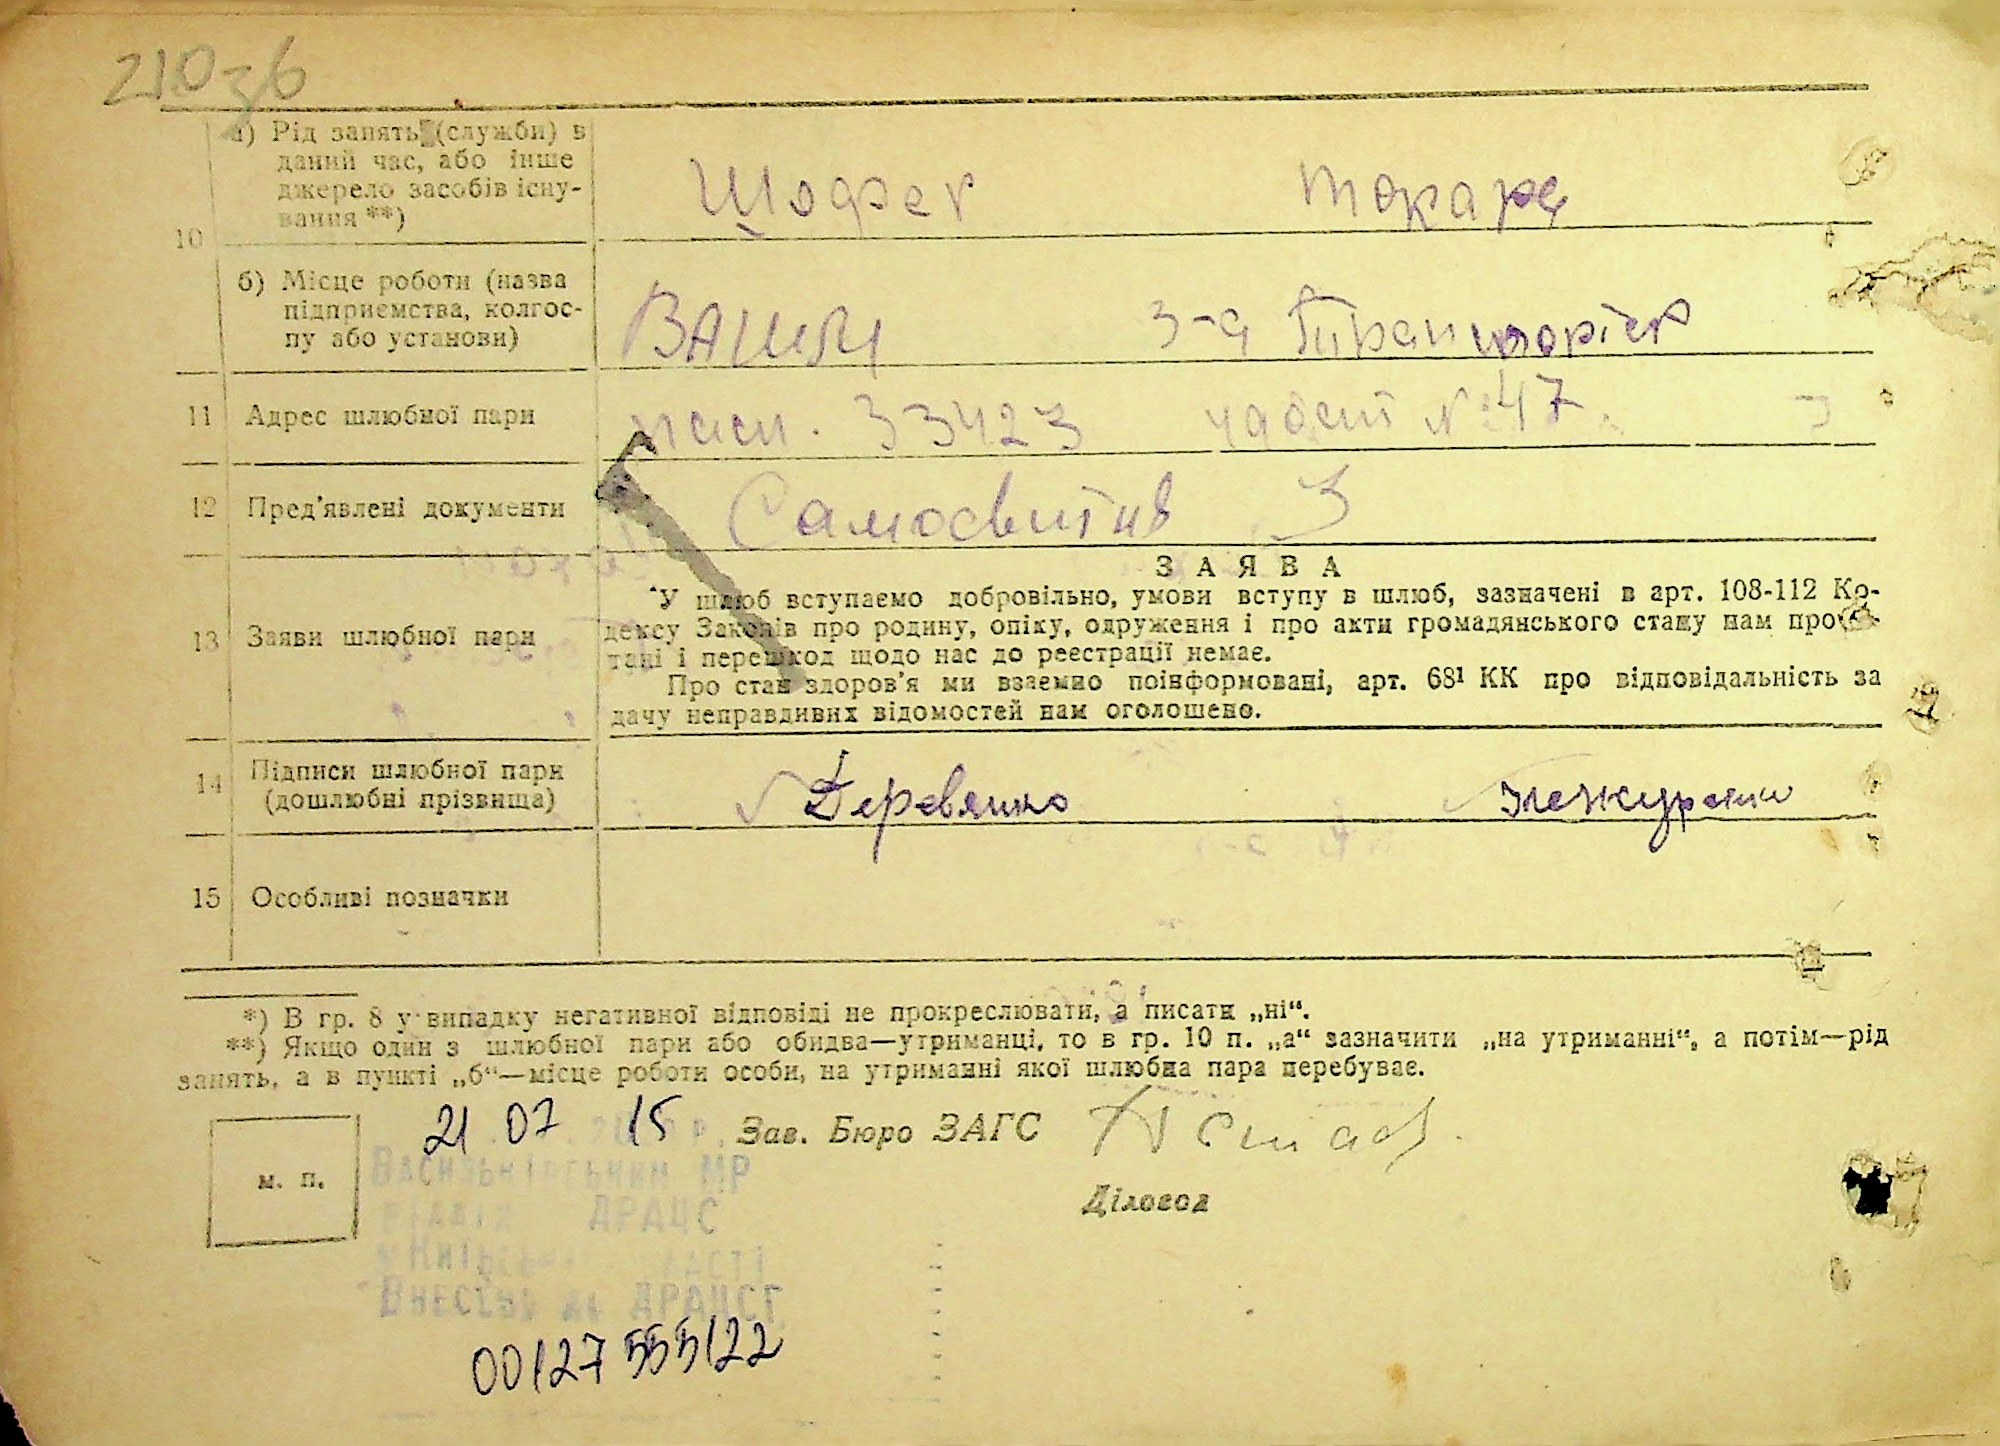 210зб
а) Рід занять (служби) в
даний час, або інше
джерело засобів існу-
вання **)
Шофер
токарь
10
б) Місце роботи (назва
підприємства, колгос-
пу або установи)
3-а
11 Адрес шлюбної пари
33423 № 47
12 Пред'явлені документи
13 Заяви шлюбної пари
ЗАЯВА
У шлюб вступаємо добровільно, умови вступу в шлюб, зазначені в арт. 108-112 Ко-
дексу Законів про родину, опіку, одруження і про акти громадянського стану нам прочи-
тані і перешкод щодо нас до реєстрації немає.
Про стан здоров'я ми взаємно поінформовані, арт. 68¹ КК про відповідальність за
дачу неправдивих відомостей нам оголошено.
14 Підписи шлюбної пари
(дошлюбні прізвища)
Деревянко
15 Особливі позначки
*) В гр. 8 у випадку негативної відповіді не прокреслювати, а писати „ні“.
**) Якщо один з шлюбної пари або обидва—утриманці, то в гр. 10 п. „а“ зазначити „на утриманні“, а потім—рід
занять, а в пункті „б“—місце роботи особи, на утриманні якої шлюбна пара перебуває.
21 07 15 Зав. Бюро ЗАГС
м. п.
Васильківський МР
відділ ДРАЦС
Діловод
Внесено до ДРАЦСГ
00127555122